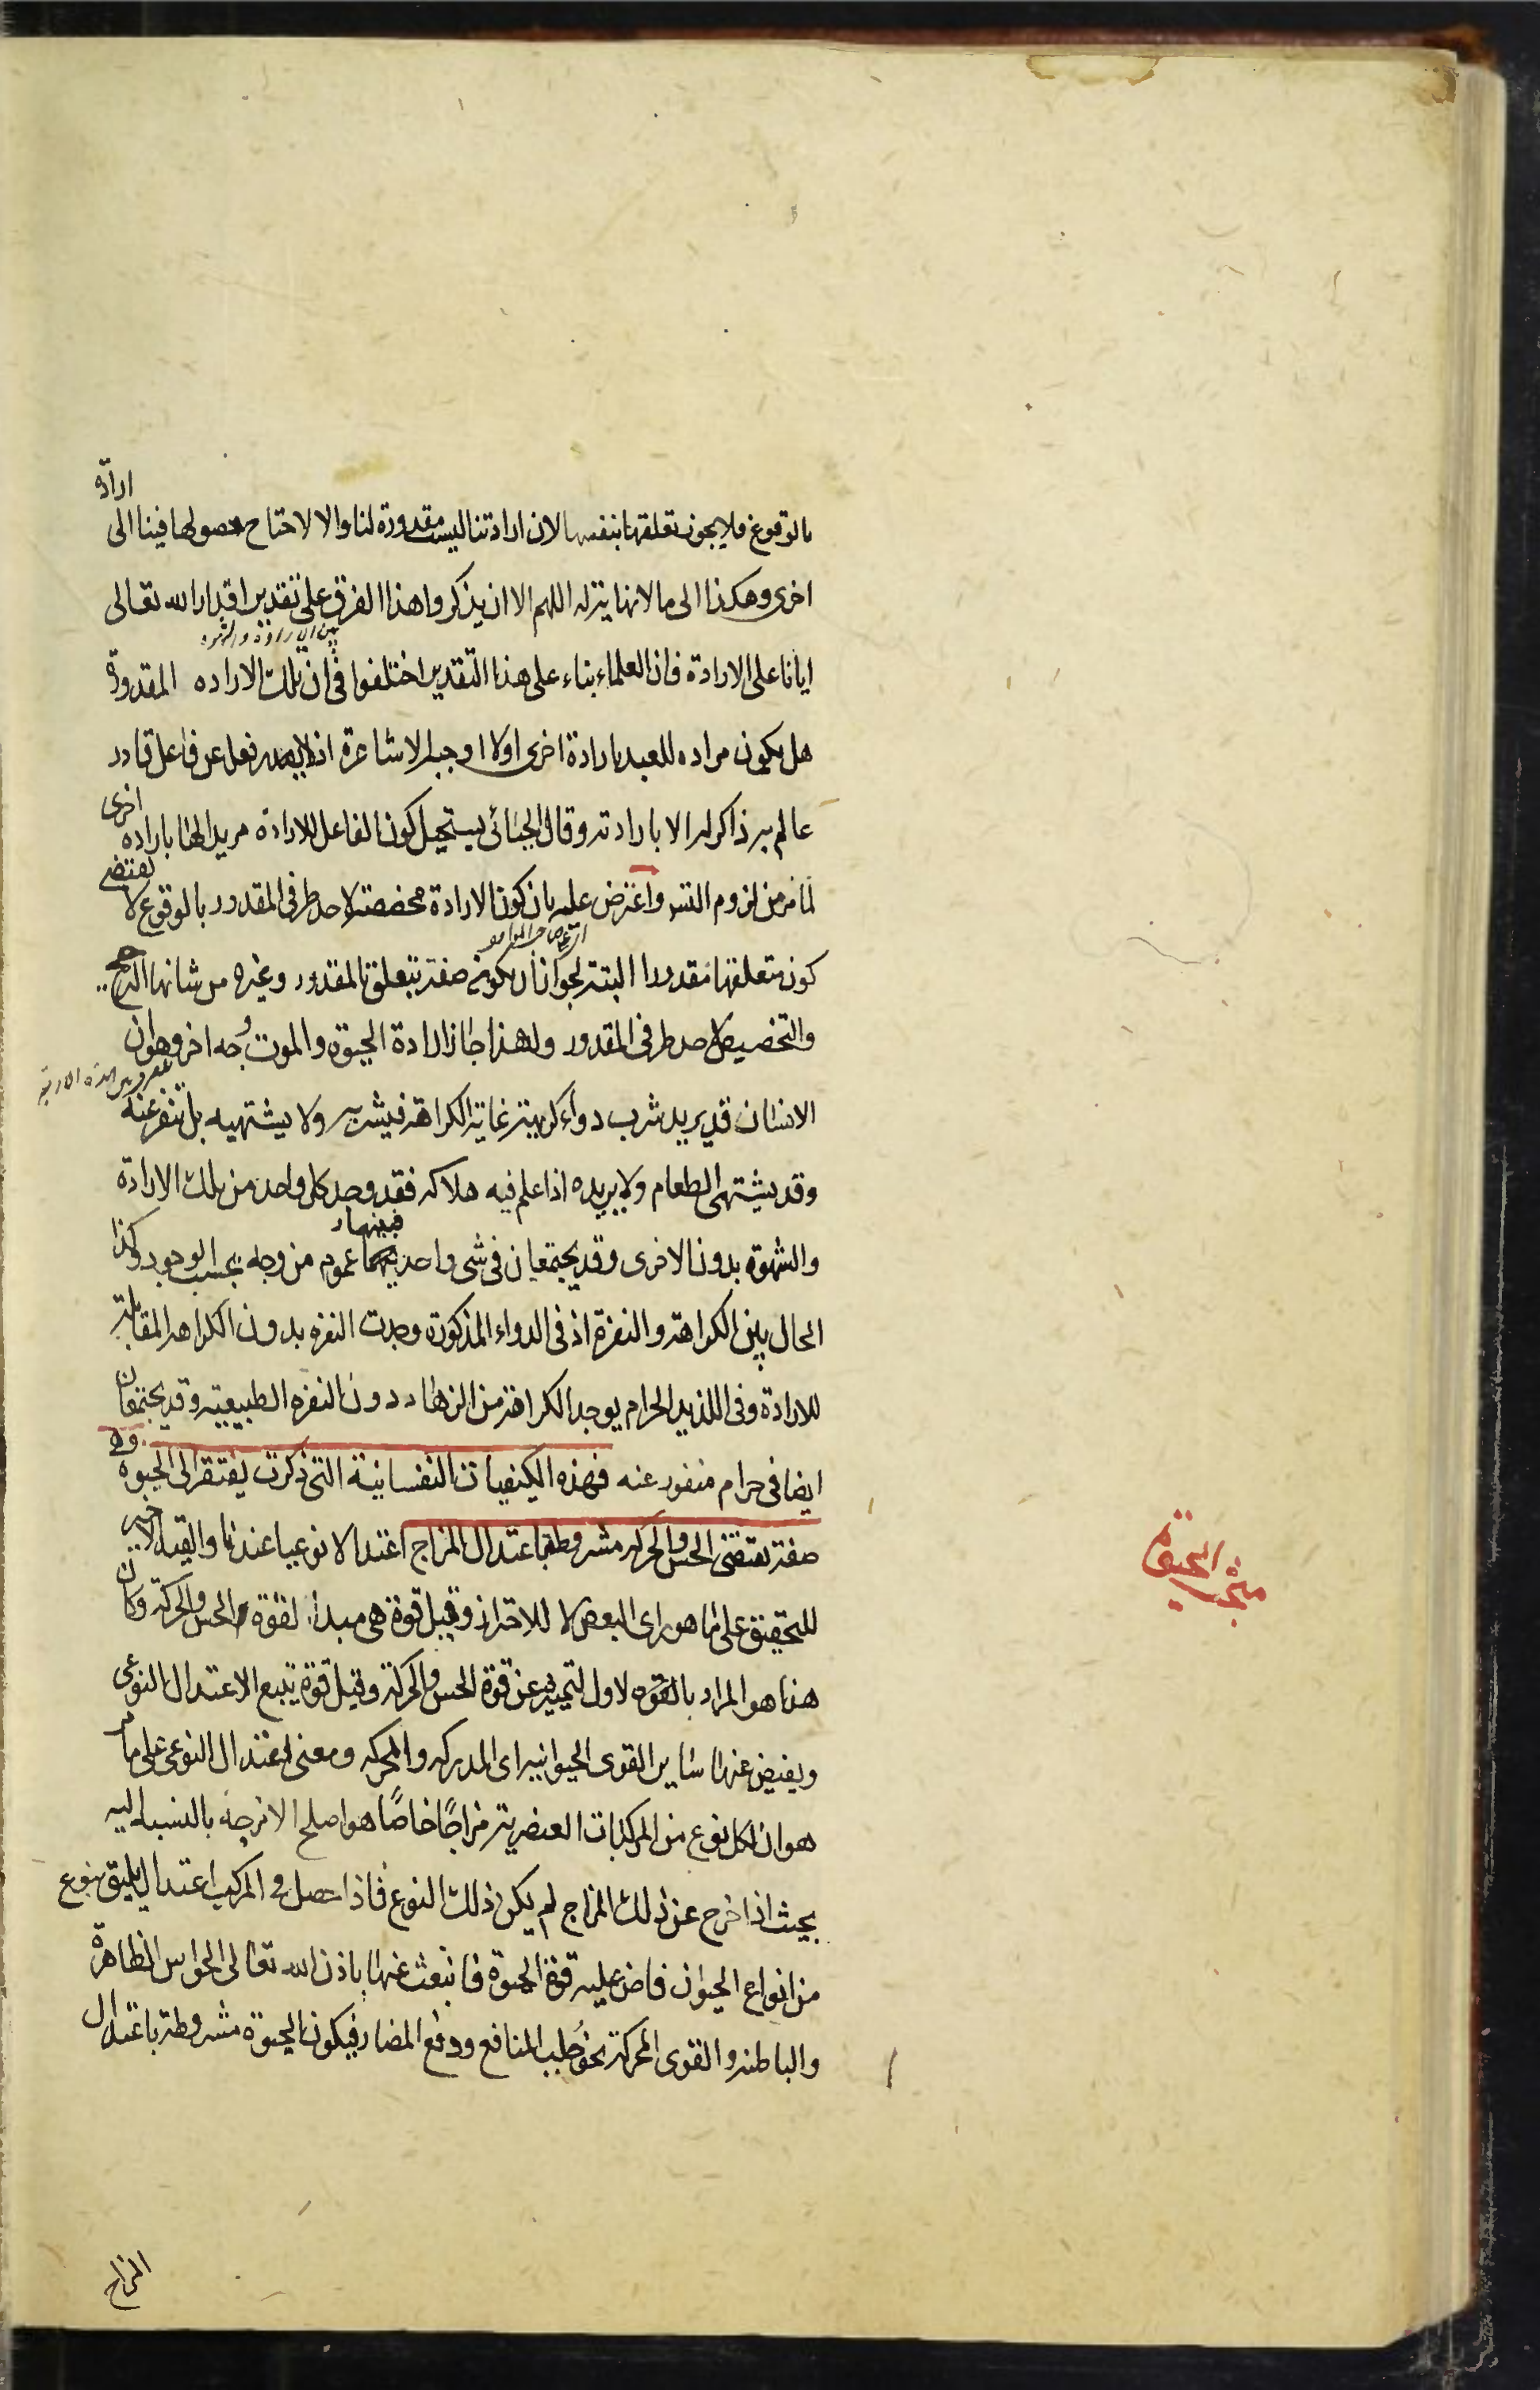 بالوقوع فلا يجوز تعلقها بنفسها لان ارادتنا ليست مقدورة لنا والا لاحتاج حصولها فينا الى ارادة
اخرى وهكذا الى ما لا نهاية له اللهم الا ان يذكروا هذا الفرق على تقدير اقدار الله تعالى
بين الارادة والشهوة
ايانا على الارادة فان العلماء بناء على هذا التقدير اختلفوا فى ان تلك الاراده المقدورة
هل يكون مراده للعبد بارادة اخرى اولا اوجبه الاشاعرة اذ لا يصدر فعل عن فاعل قادر
عالم به ذاكر له الا بارادته وقال الجبائى يستحيل كون الفاعل للارادة مريدا لها باراده اخرى
لما مر من لزوم التس واعترض عليه بان كون الارادة مخصصة لاحد طرفى المقدور بالوقوع لا يقتضى
كون متعلقها مقدورا البتة لجواز ان يكون صفة تتعلق بالمقدور وغيره من شانها الترجيح
والتخصيص لاحد طرفى المقدور ولهذا جاز ارادة الحيوة والموت وجه اخر وهو ان
الانسان قد يريد شرب دواء كريهة غاية الكراهة فيشربه ولا يشتهيه بل تنفر عنه
وقد يشتهى الطعام ولا يريده اذا علم فيه هلاكه فقد وجد كل واحد من تلك الارادة
والشهوة بدون الاخرى وقد يجتمعان فى شى واحد فبينهما عموم من وجه بحسب الوجود وكذا
الحال بين الكراهة والنفرة اذ فى الدواء المذكورة وجدت النفره بدون الكراهه المقابلة
للارادة وفى اللذيد الحرام يوجد الكراهة من الزهاد دون النفره الطبيعيه وقد يجتمعان
ايضا فى حرام منفور عنه فهذه الكيفيات النفسانية التى ذكرت يفتقر الى الحيوة وهى
صفة تقتضى الحس والحركه مشروطة باعتدال المزاج اعتدالا نوعيا عندنا والقيد الاخير
مبحث الحيوة
للتحقيق على ما هو راى البعض لا للاحتراز وقيل قوة هى مبداء لقوة الحس والحركة وكان
هذا هو المراد بالقوه الاول لتميزه عن قوة الحس والحركة وقيل قوة يتبع الاعتدال النوعى
ويفيض عنها ساير القوى الحيوانيه اى المدركه والمحركه ومعنى الاعتدال النوعى على ما مر
هو ان لكل نوع من المركبات العنصرية مزاجًا خاصًا هو اصلح الامزجه بالنسبه اليه
بحيث اذا خرج عن ذلك المزاج لم يكن ذلك النوع فاذا حصل فى المركب اعتدال يليق بنوع
من انواع الحيوان فاض عليه قوة الحيوة فانبعث عنها باذن الله تعالى الحواس الظاهرة
والباطنه والقوى المحركة نحو طلب المنافع ودفع المضار فيكون الحيوة مشروطة باعتدال
المزاج